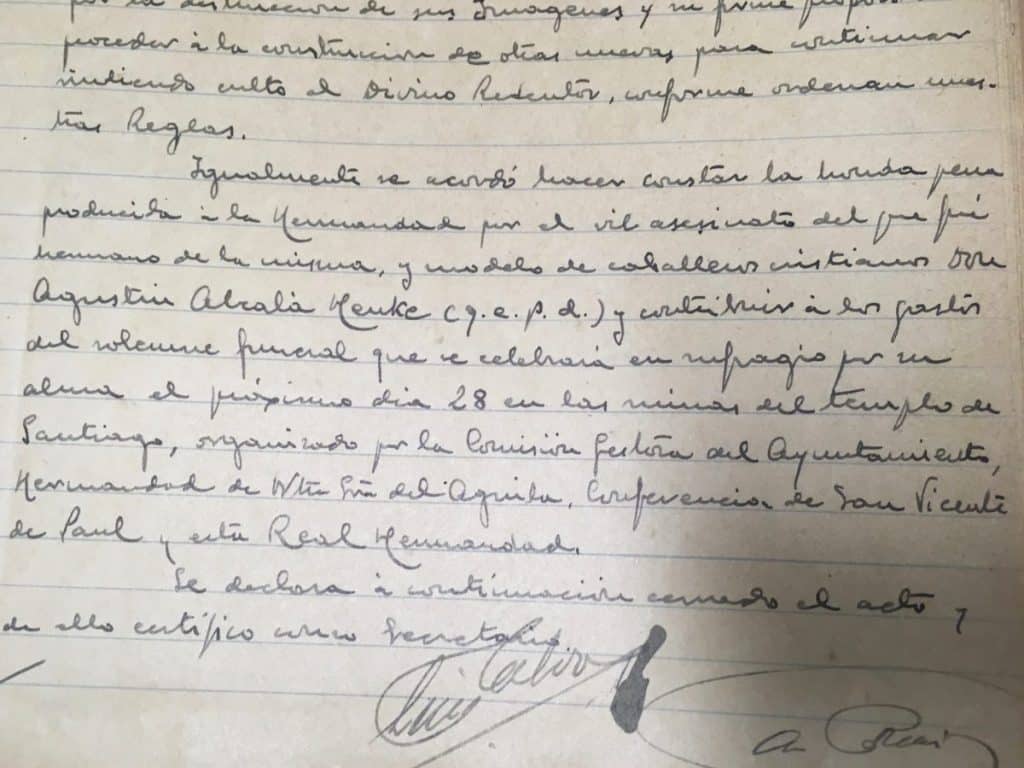 por la destrucción de sus Imágenes y su firme propósi
proceder á la construcción de otras nuevas para continuar
rindiendo culto al Divino Redentor, conforme ordenan nues-
tras Reglas.
Igualmente se acordó hacer constar la honda pena
producida á la Hermandad por el vil asesinato del que fué
hermano de la misma, y modelo de caballeros cristianos Don
Agustin Alcalá Henke (q. e. p. d.) y contribuir á los gastos
del solemne funeral que se celebrará en sufragio por su
alma el próximo dia 28 en las ruinas del templo de
Santiago, organizado por la Comisión Gestora del Ayuntamiento,
Hermandad de Ntra Sra del Aguila, Conferencia de San Vicente
de Paul y esta Real Hermandad.
Se declara á continuación cerrado el acto y
de ello certifico como Secretario.
Luis Calvo